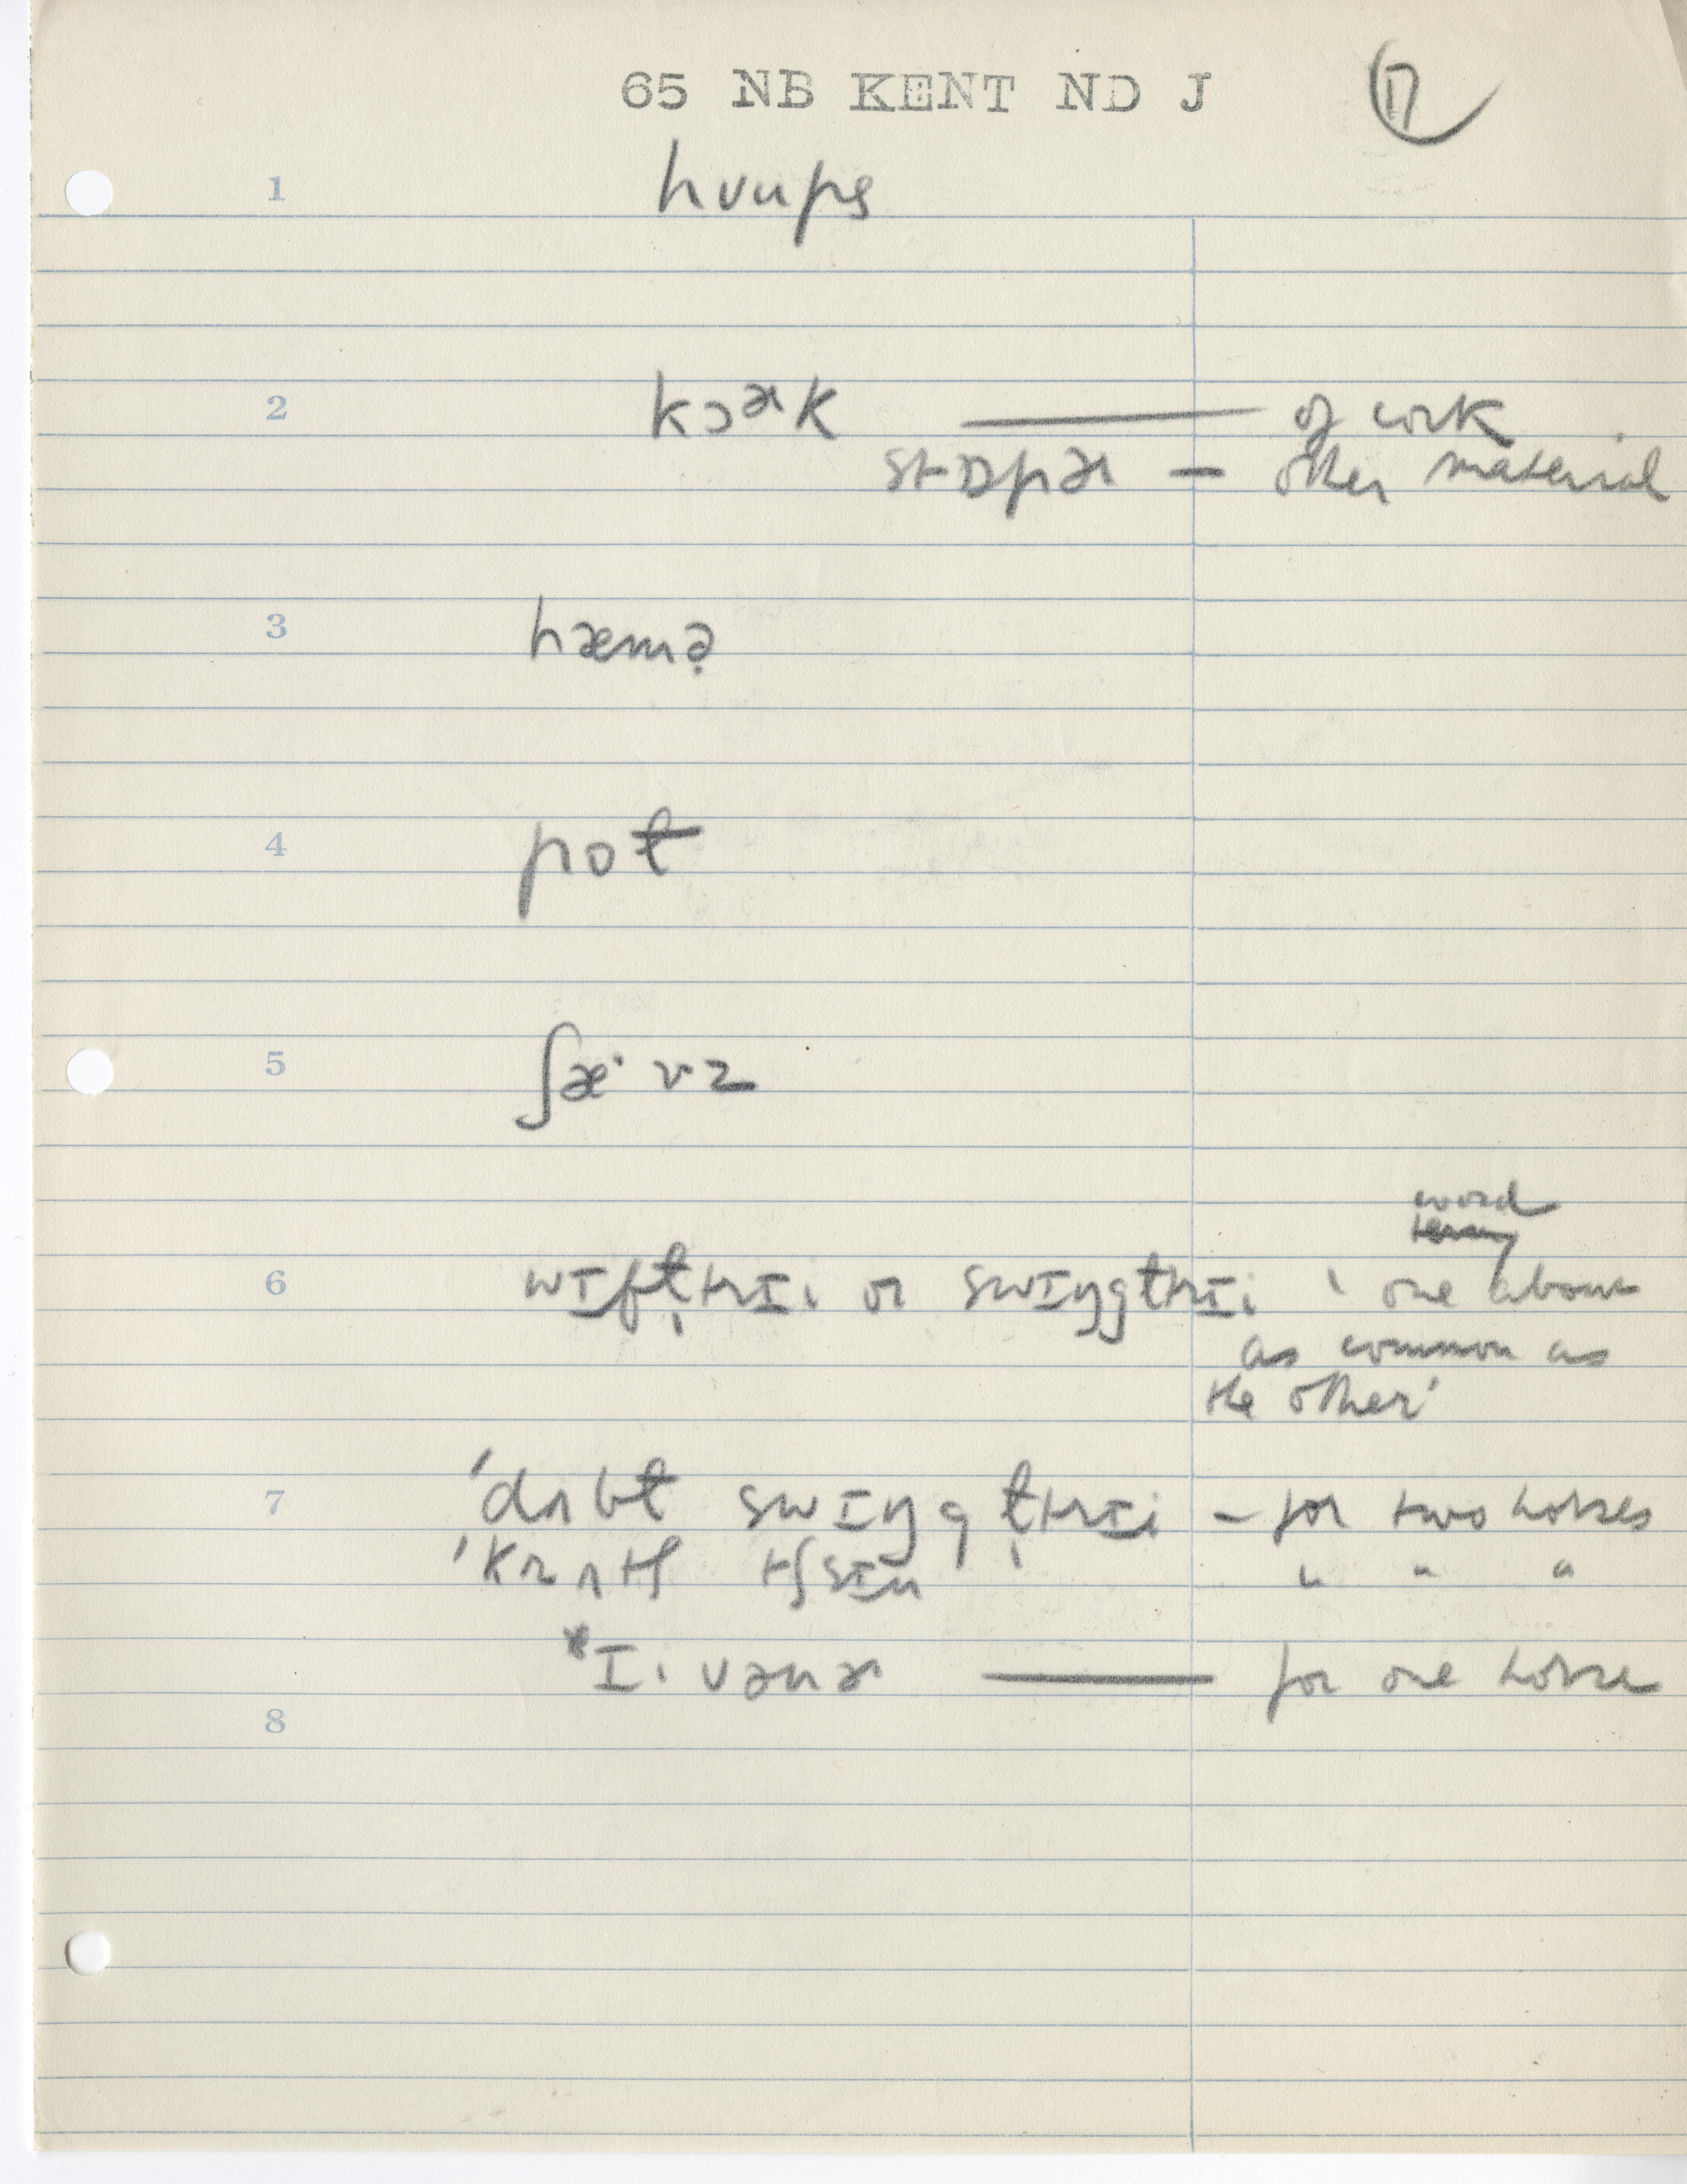 65 NB KENT ND J 17
1 hʊups
2 kɔɚk — of cork
stɒpɚ — other material
3 hæmə̣
4 pot
5 ʃæ·vz
word
6 wɪftrɪi or swɪŋgtrɪi ' one about
as common as
the other'
7 'dʌbt swɪŋg trɪi - for two horses
" " "
*ɪ·vənɚ — for one horse
8